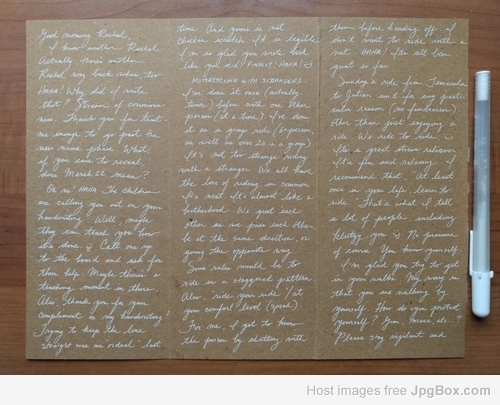 Good morning Rachel,
I know another Rachel.
Actually more another
Rachel way back when too
HAHA! Why did I write
that? Stream of conscious-
ness. Thank you for trust
me enough to go past the
new name phase. What,
if you care to reveal,
does March 22 mean?
Oh no! HAHA The children
are calling you out on your
handwriting. Well, maybe
they can teach you how
it's done. Call one up
to the board and ask for
their help. Maybe there's a
teaching moment in there.
Also, thank you for your
compliment on my handwriting!
Trying to keep the line
straight was an "ordeal" last
time. And yours is not
chicken scratch. It's so legible
I'm so glad you wrote back
like you did! FINALLY! HAHA!
MOTORCYCLING WITH STRANGERS:
I've done it once (actually
twice) before with one other
person (at a time). I've done
it as a group ride (6-person,
as well as over 20 in a group)
It's not too strange riding
with a stranger. We all have
the love of riding in common.
It's neat. It's almost like a
brotherhood. We greet each
other as we pass each other,
be at the same direction, or
going the opposite way.
Some rules would be to
ride in a staggered pattern.
Also, ride your ride / at
your comfort level (speed)
For one, I get to know
the person by chatting with
them before heading off. I
don't want to ride with a
nut. HAHA! It's all been
great so far.
Sunday's ride from Temecula
to Julian isn't for any parti-
cular reason (no fundraiser)
other than just enjoying a
ride. We ride to ride.
It's a great stress reliever.
It's fun and relaxing. I
recommend that, at least
once in your life, learn to
ride. That's what I tell
a lot of people including
you. No pressure
of course. You know yourself
I'm glad you try to get
in your walks. My worry is
that you are walking by
yourself. How do you protect
yourself? Gun, mace, etc...?
Please stay vigilant and
Host images free JpgBox.com